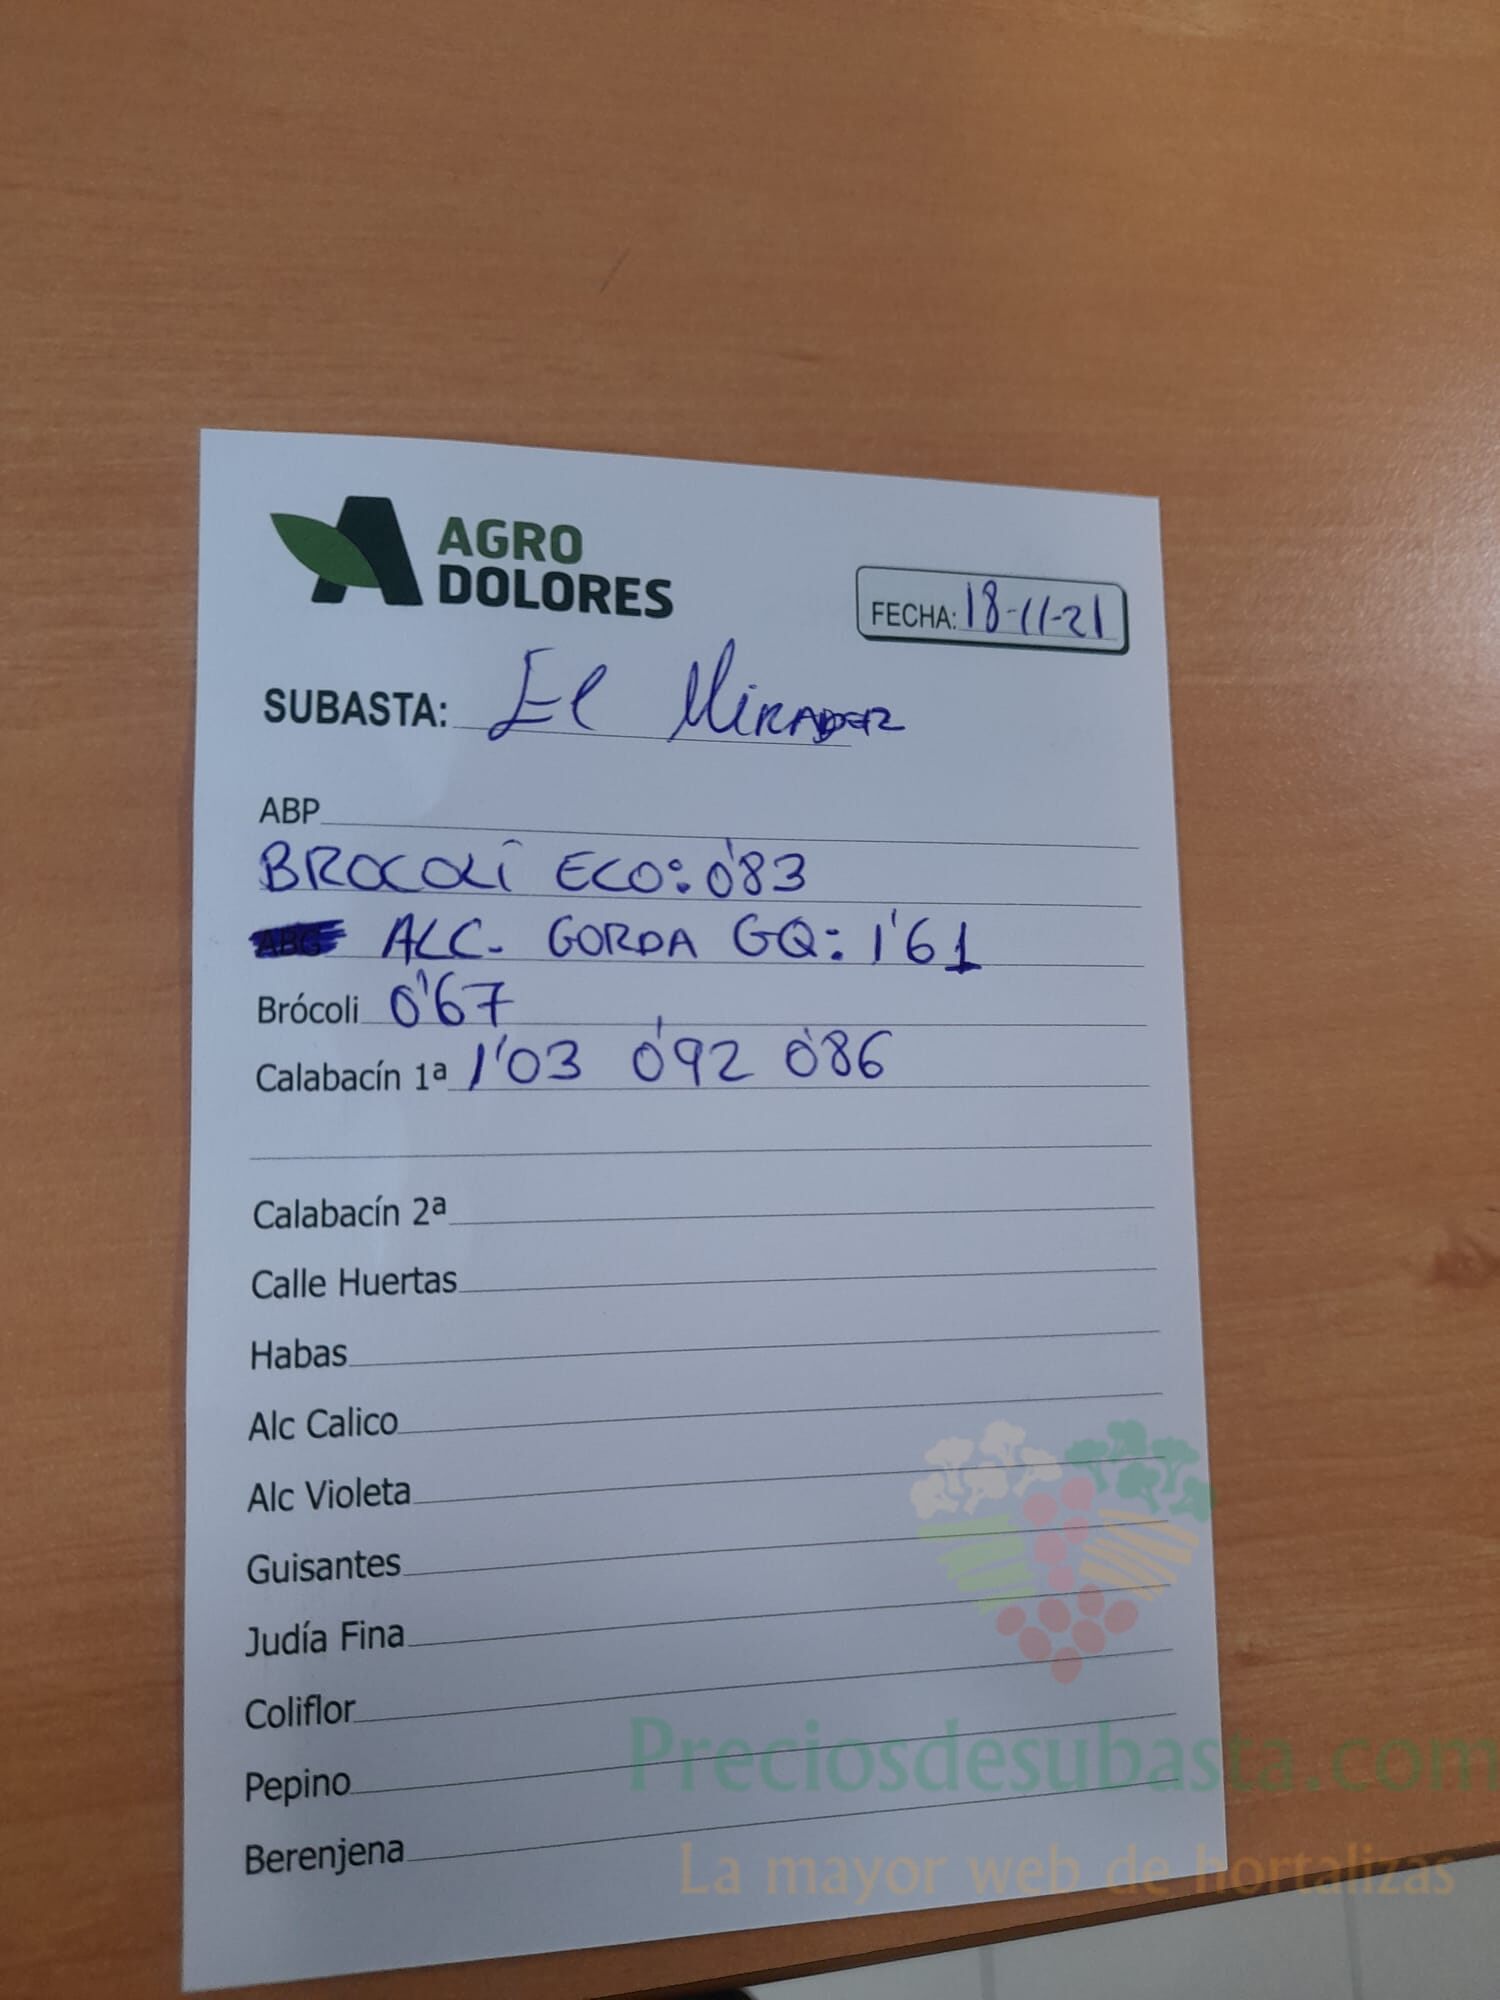 AGRO
DOLORES
FECHA: 18-11-21
SUBASTA: El Mirador
ABP
BROCOLI ECO: 0'83
ABG ALC. GORDA GQ: 1'61
Brócoli 0'67
Calabacín 1ª 1'03 0'92 0'86
Calabacín 2ª
Calle Huertas
Habas
Alc Calico
Alc Violeta
Guisantes
Judía Fina
Coliflor
Pepino
Berenjena
Preciosdesubasta.com
La mayor web de hortalizas